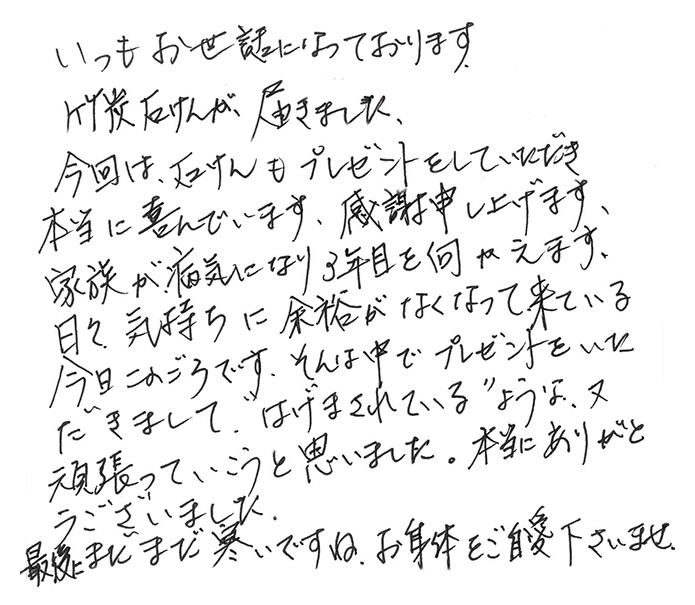 いつもお世話になっております.
竹炭石けんが、届きました、
今回は、石けんもプレゼントをしていただき
本当に喜んでいます、感謝申し上げます、
家族が病気になり3年目を向かえます、
日々気持ちに余裕がなくなって来ている
今日このごろです. そんな中でプレゼントをいた
だきまして、"はげまされている"ような、又
頑張っていこうと思いました。本当にありがと
うございました.
最後にまだまだ寒いですね. お身体をご自愛下さいませ.